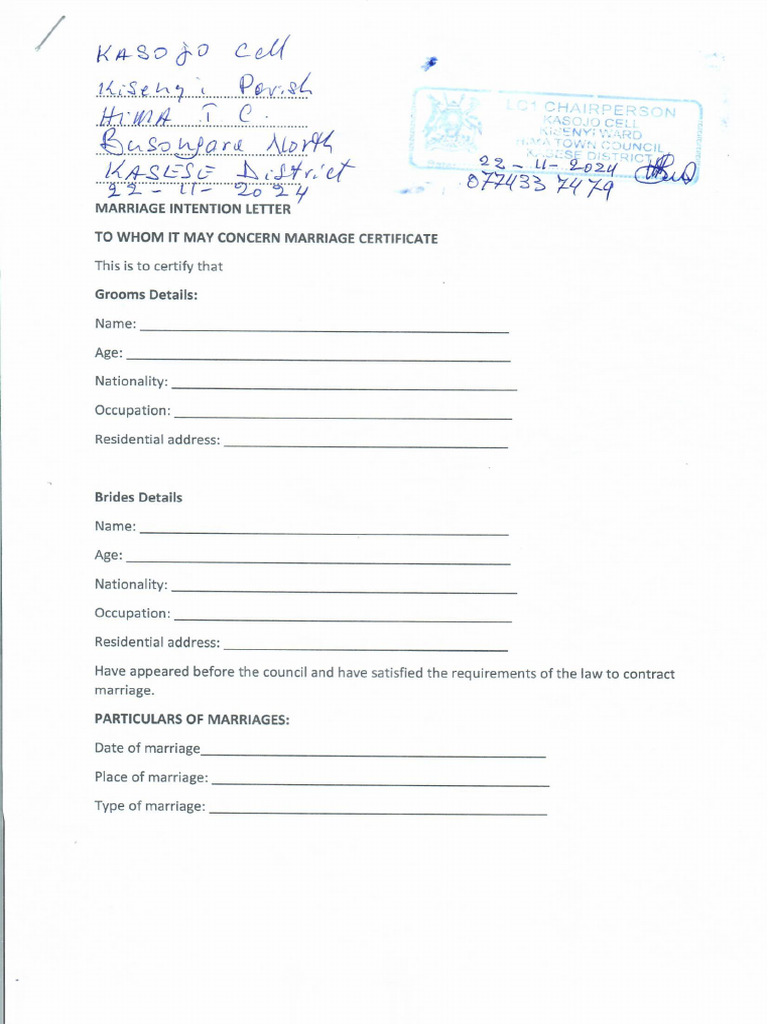 KASOJO Cell
Kisenyi Parish
HIMA T C.
Busongora North
KASESE District
22-11-2024
LC1 CHAIRPERSON
KASOJO CELL
KISENYI WARD
HIMA TOWN COUNCIL
KASESE DISTRICT
22-11-2024
077433 7479
MARRIAGE INTENTION LETTER
TO WHOM IT MAY CONCERN MARRIAGE CERTIFICATE
This is to certify that
Grooms Details:
Name:
Age:
Nationality:
Occupation:
Residential address:
Brides Details
Name:
Age:
Nationality:
Occupation:
Residential address:
Have appeared before the council and have satisfied the requirements of the law to contract
marriage.
PARTICULARS OF MARRIAGES:
Date of marriage
Place of marriage:
Type of marriage: